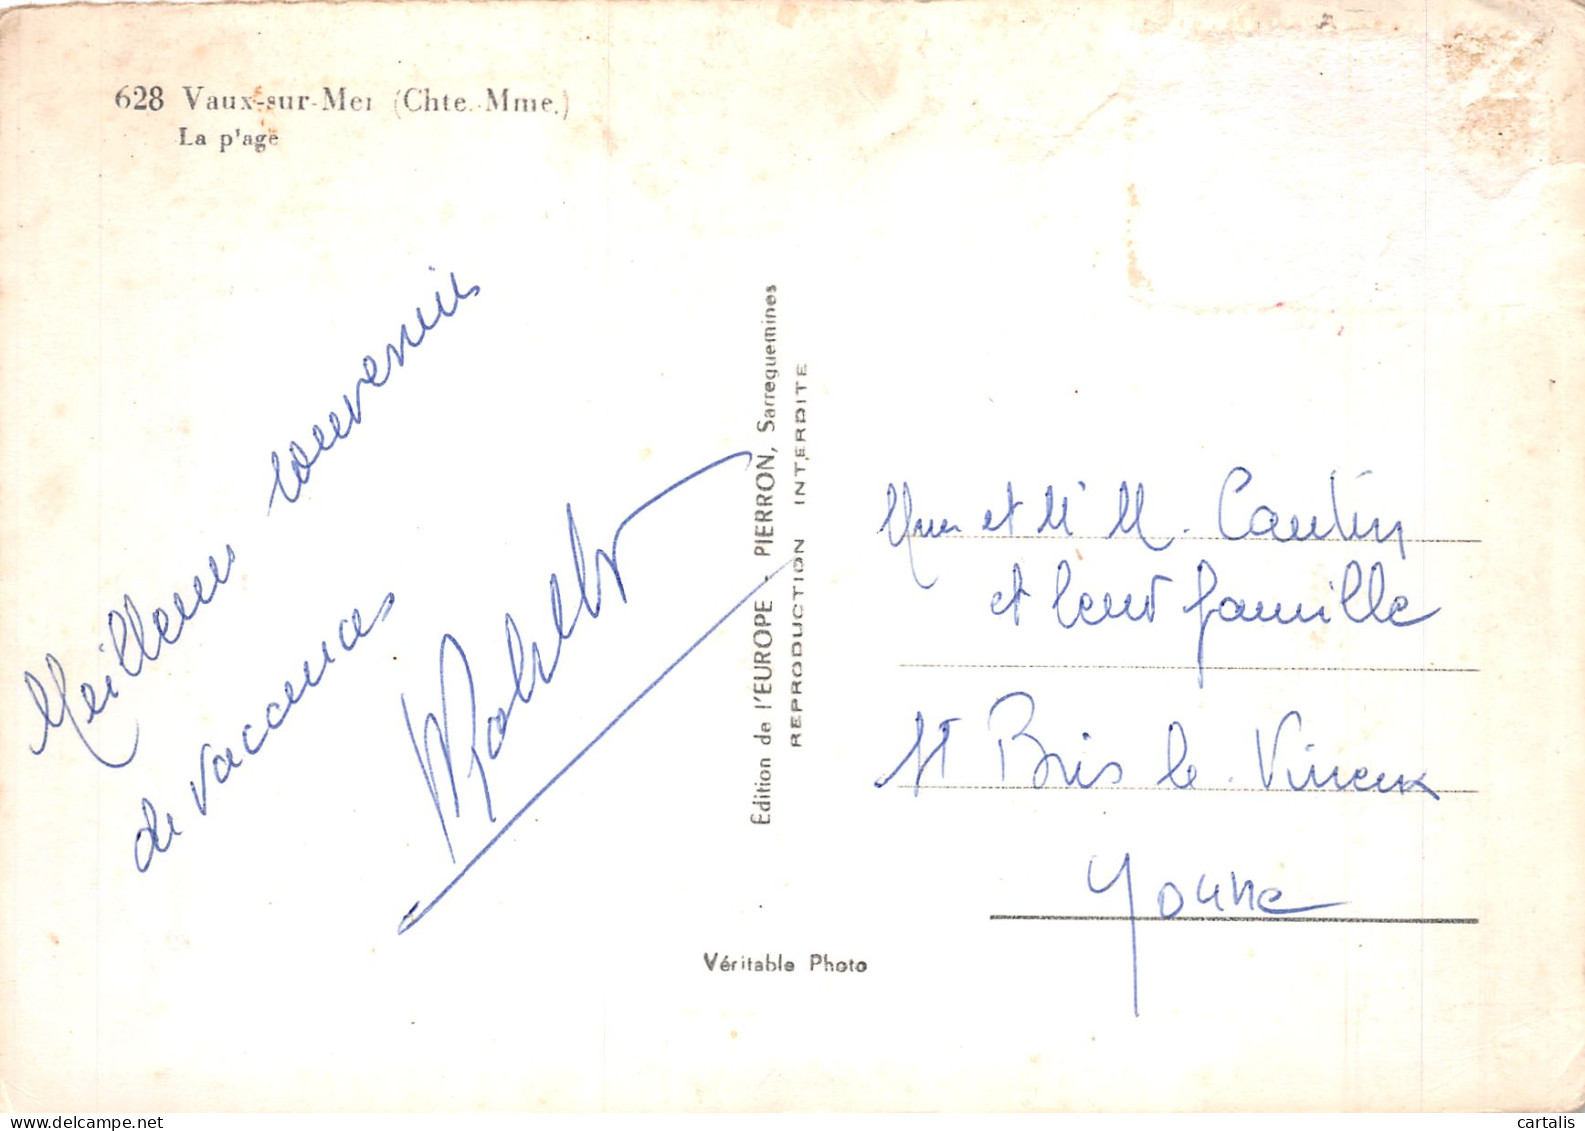 628 Vaux-sur-Mer (Chte.-Mme.)
La p'age
Meilleurs souvenirs
de vaccances
Édition de l'EUROPE - PIERRON, Sarreguemines
REPRODUCTION INTERDITE
Mme et M. Cantin
et leur famille
St Bris le Vineux
Yonne
Véritable Photo
delcampe.net
cartalis